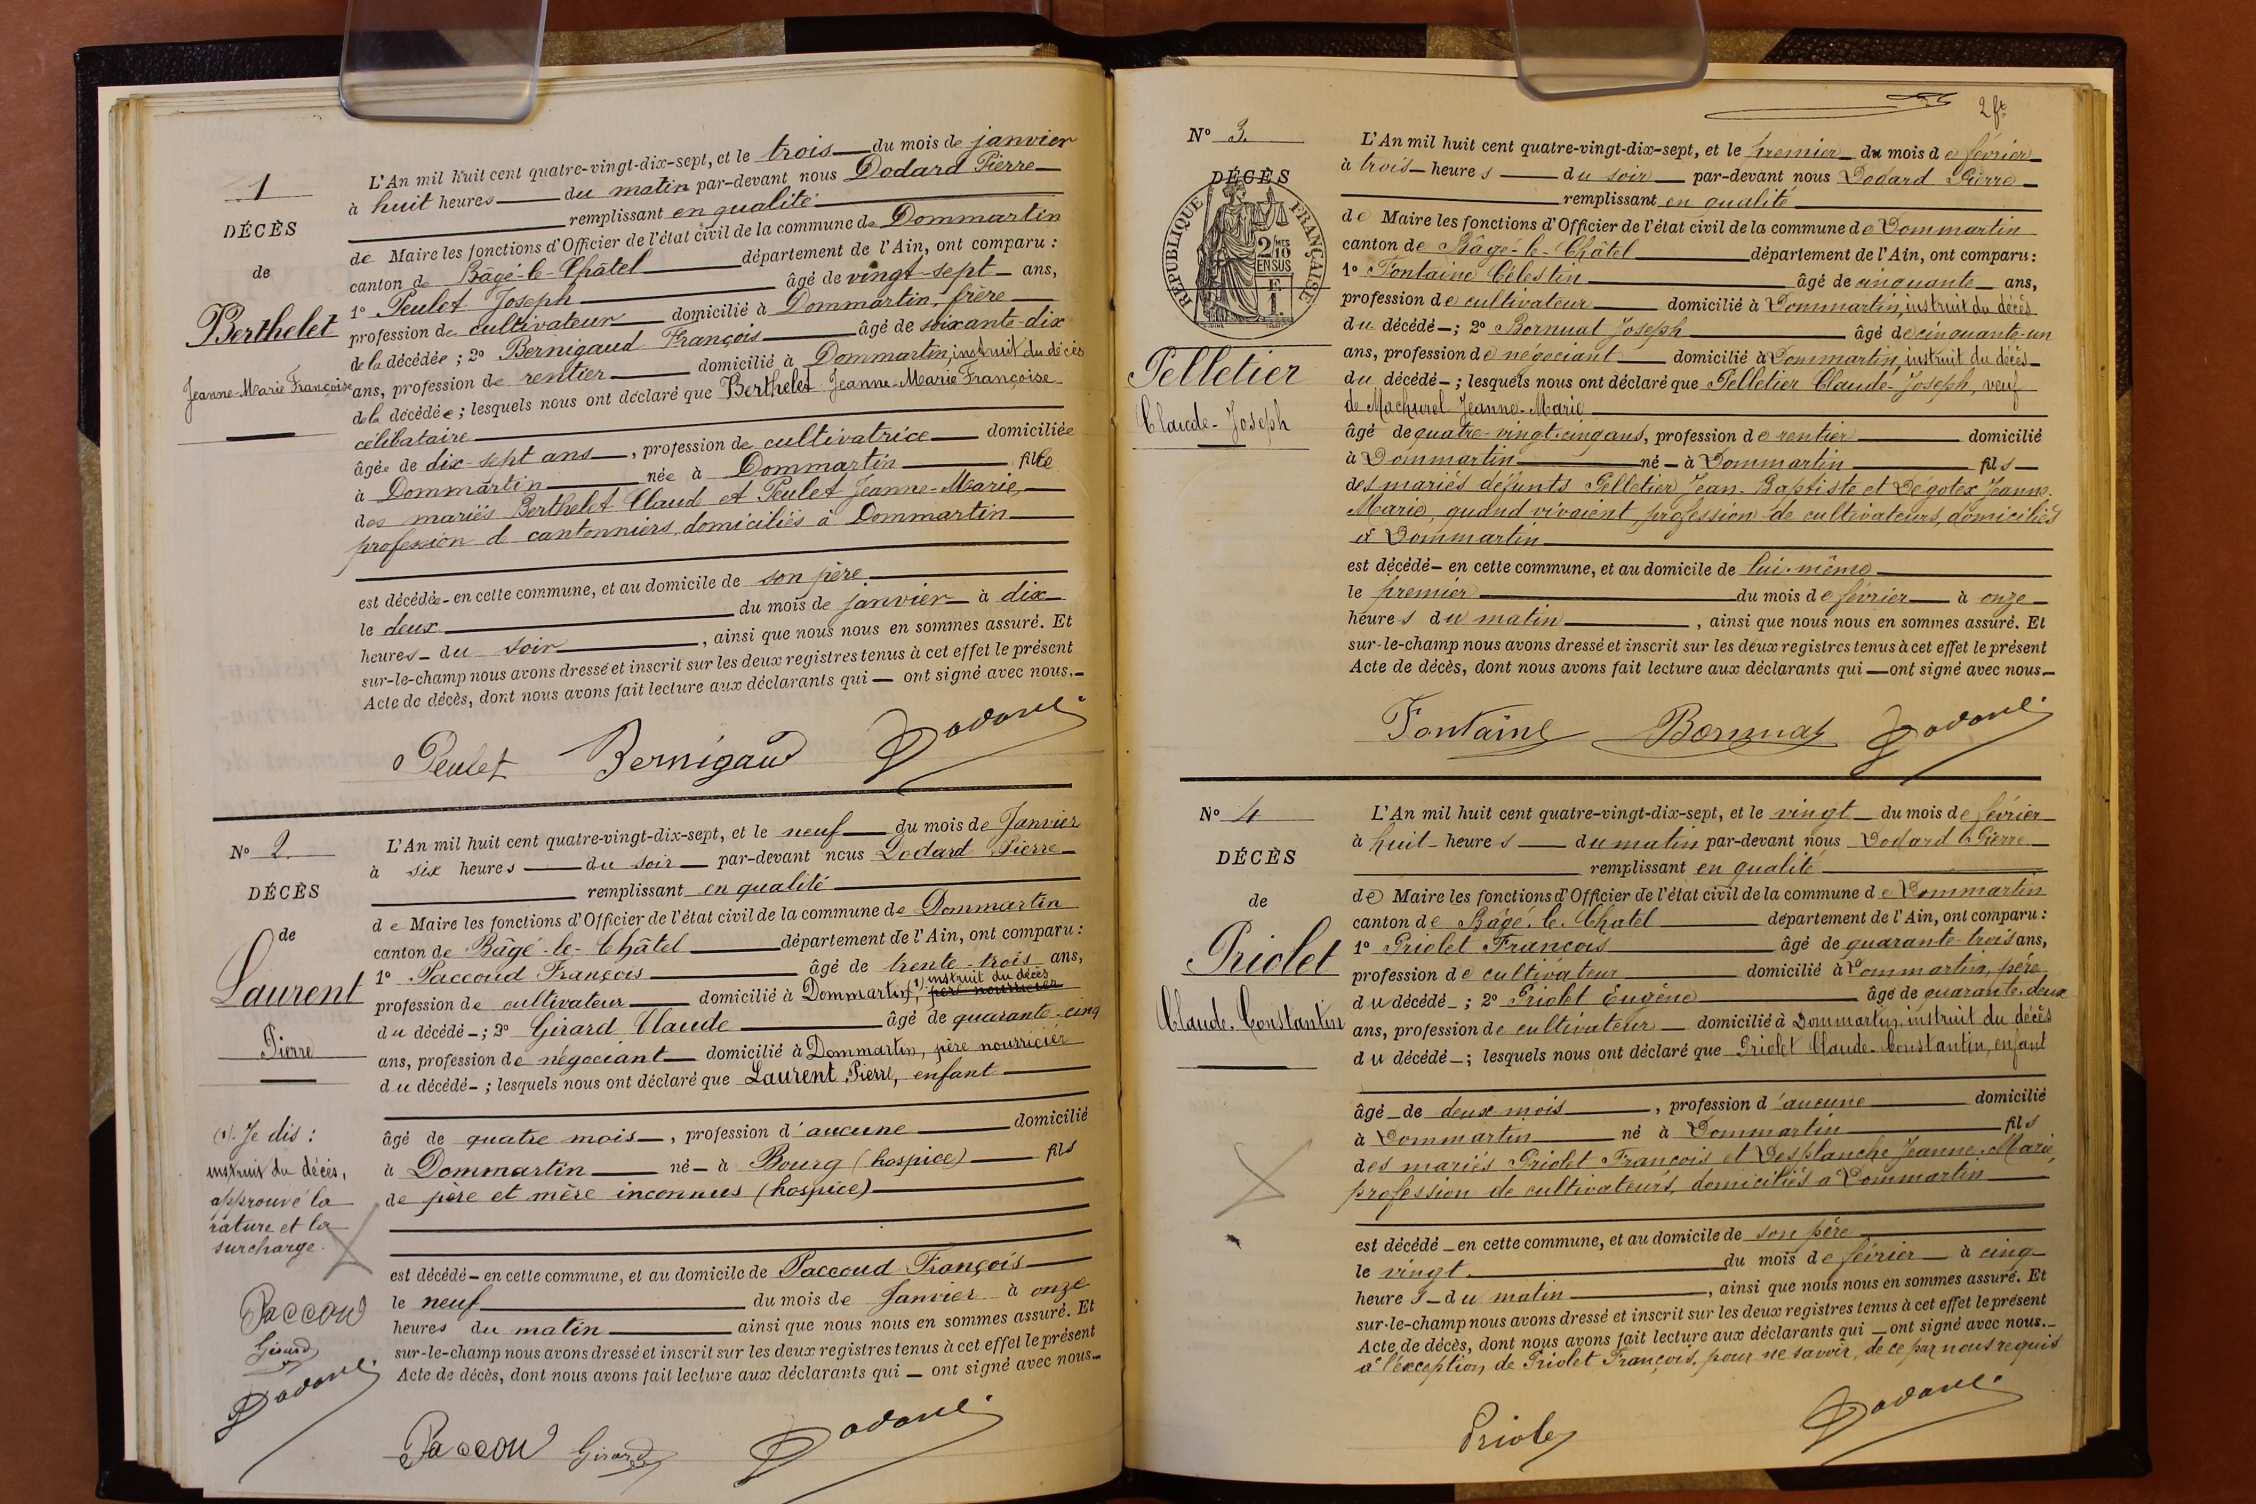 1
DÉCÈS
de
Berthelet
Jeanne-Marie Françoise
L'An mil huit cent quatre-vingt-dix-sept, et le trois du mois de janvier
à huit heures du matin par-devant nous Dodard Pierre
remplissant en qualité
de Maire les fonctions d'Officier de l'état civil de la commune de Dommartin
canton de Bâgé-le-Châtel département de l'Ain, ont comparu :
1° Peulet Joseph âgé de vingt-sept ans,
profession de cultivateur domicilié à Dommartin, frère
de la décédée ; 2° Bernigaud François âgé de soixante-dix
ans, profession de rentier domicilié à Dommartin, instruit du décès
de la décédée ; lesquels nous ont déclaré que Berthelet Jeanne-Marie Françoise
célibataire
âgée de dix-sept ans, profession de cultivatrice domiciliée
à Dommartin née à Dommartin fille
des mariés Berthelet Claud et Peulet Jeanne-Marie,
profession d cantonniers, domiciliés à Dommartin
est décédée en cette commune, et au domicile de son père
le deux du mois de janvier à dix
heures du soir, ainsi que nous nous en sommes assuré. Et
sur-le-champ nous avons dressé et inscrit sur les deux registres tenus à cet effet le présent
Acte de décès, dont nous avons fait lecture aux déclarants qui ont signé avec nous.
Peulet Bernigaud Dodard
N° 2
DÉCÈS
de
Laurent
Pierre
L'An mil huit cent quatre-vingt-dix-sept, et le neuf du mois de Janvier
à six heures du soir par-devant nous Dodard Pierre
remplissant en qualité
de Maire les fonctions d'Officier de l'état civil de la commune de Dommartin
canton de Bâgé-le-Châtel département de l'Ain, ont comparu :
1° Paccoud François âgé de trente-trois ans,
profession de cultivateur domicilié à Dommartin, (1) instruit du décès père nourricier
du décédé ; 2° Girard Claude âgé de quarante-cinq
ans, profession de négociant domicilié à Dommartin, père nourricier
du décédé ; lesquels nous ont déclaré que Laurent Pierre, enfant
âgé de quatre mois, profession d'aucune domicilié
à Dommartin né à Bourg (hospice) fils
de père et mère inconnus (hospice)
est décédé en cette commune, et au domicile de Paccoud François
le neuf du mois de Janvier à onze
heures du matin ainsi que nous nous en sommes assuré. Et
sur-le-champ nous avons dressé et inscrit sur les deux registres tenus à cet effet le présent
Acte de décès, dont nous avons fait lecture aux déclarants qui ont signé avec nous.
(1). Je dis :
instruit du décès,
approuvé la
rature et la
surcharge.
Paccoud
Girard
Dodard
Paccoud Girard Dodard
2 ft
N° 3.
DÉCÈS
RÉPUBLIQUE FRANÇAISE
2/10 MES
EN SUS
F
1.
Pelletier
Claude-Joseph
L'An mil huit cent quatre-vingt-dix-sept, et le premier du mois de février
à trois heures du soir par-devant nous Dodard Pierre
remplissant en qualité
de Maire les fonctions d'Officier de l'état civil de la commune de Dommartin
canton de Bâgé-le-Châtel département de l'Ain, ont comparu :
1° Fontaine Célestin âgé de cinquante ans,
profession de cultivateur domicilié à Dommartin, instruit du décès
du décédé ; 2° Bornuat Joseph âgé de cinquante-un
ans, profession de négociant domicilié à Dommartin, instruit du décès
du décédé ; lesquels nous ont déclaré que Pelletier Claude-Joseph, veuf
de Machurel Jeanne-Marie
âgé de quatre-vingt-cinq ans, profession de rentier domicilié
à Dommartin né à Dommartin fils
des mariés défunts Pelletier Jean-Baptiste et Dégotex Jeanne-
Marie, quand vivaient, profession de cultivateurs, domiciliés
à Dommartin
est décédé en cette commune, et au domicile de lui-même
le premier du mois de février à onze
heures du matin, ainsi que nous nous en sommes assuré. Et
sur-le-champ nous avons dressé et inscrit sur les deux registres tenus à cet effet le présent
Acte de décès, dont nous avons fait lecture aux déclarants qui ont signé avec nous.
Fontaine Bornuat Dodard
N° 4
DÉCÈS
de
Priolet
Claude-Constantin
L'An mil huit cent quatre-vingt-dix-sept, et le vingt du mois de février
à huit heures du matin par-devant nous Dodard Pierre
remplissant en qualité
de Maire les fonctions d'Officier de l'état civil de la commune de Dommartin
canton de Bâgé-le-Chatel département de l'Ain, ont comparu :
1° Priolet François âgé de quarante-trois ans,
profession de cultivateur domicilié à Dommartin, père
du décédé ; 2° Priolet Eugène âgé de quarante-deux
ans, profession de cultivateur domicilié à Dommartin, instruit du décès
du décédé ; lesquels nous ont déclaré que Priolet Claude-Constantin, enfant
âgé de deux mois, profession d'aucune domicilié
à Dommartin né à Dommartin fils
des mariés Priolet François et Desplanche Jeanne-Marie,
profession de cultivateurs, domiciliés à Dommartin
est décédé en cette commune, et au domicile de son père
le vingt du mois de février à cinq
heures du matin, ainsi que nous nous en sommes assuré. Et
sur-le-champ nous avons dressé et inscrit sur les deux registres tenus à cet effet le présent
Acte de décès, dont nous avons fait lecture aux déclarants qui ont signé avec nous.
à l'exception, de Priolet François, pour ne savoir, de ce par nous requis
Priolet Dodard